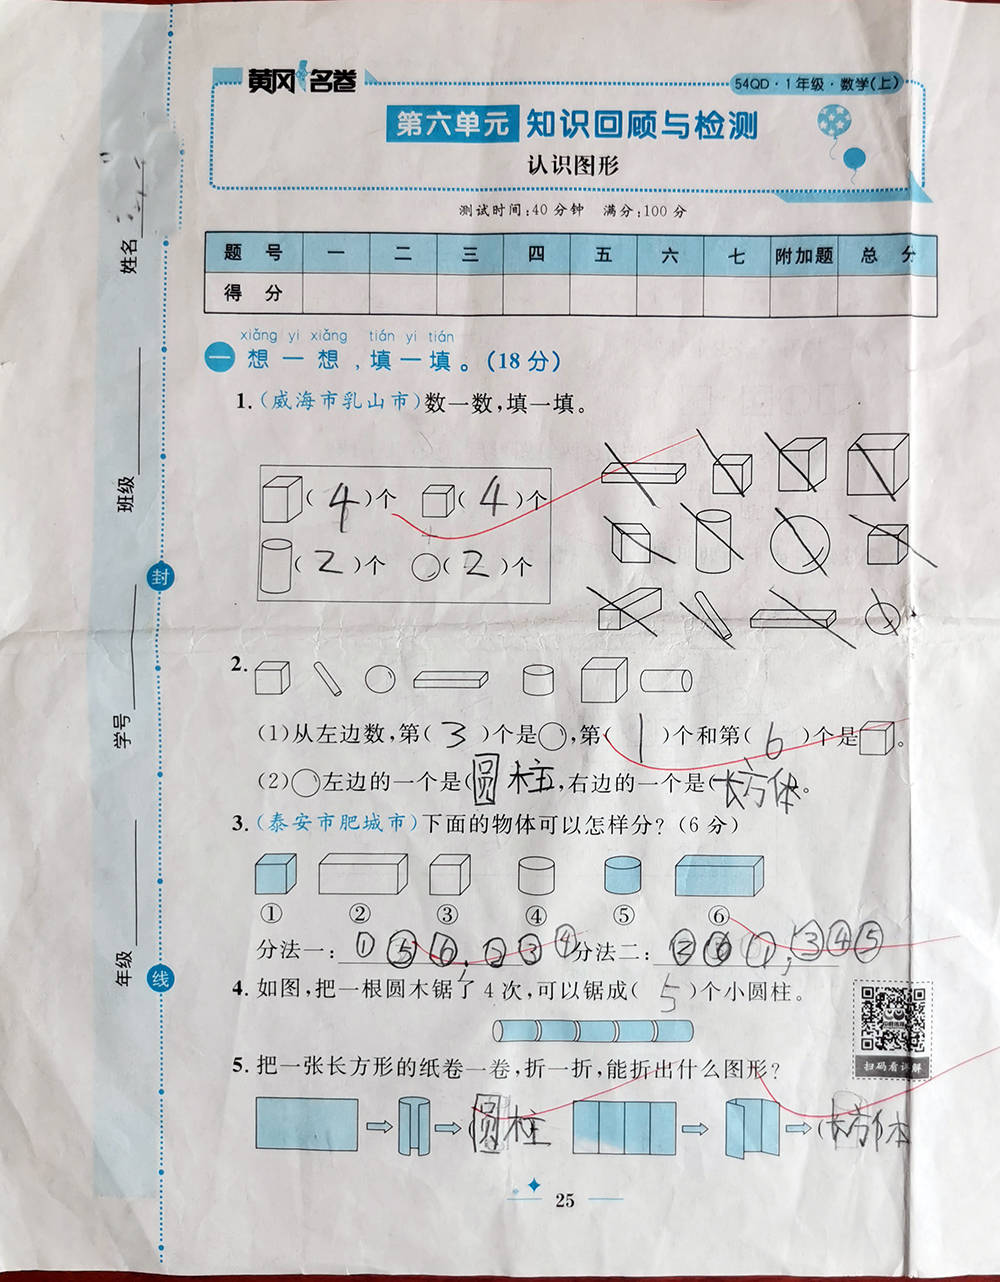 黄冈名卷
54QD·1年级·数学(上)
第六单元 知识回顾与检测
认识图形
测试时间:40分钟 满分:100分
题 号 一 二 三 四 五 六 七 附加题 总 分
得 分
xiǎng yi xiǎng tián yi tián
一 想一想,填一填。(18分)
1.(威海市乳山市)数一数,填一填。
(4)个 (4)个
(2)个 (2)个
2.
(1)从左边数,第(3)个是 ,第(1)个和第(6)个是 。
(2) 左边的一个是(圆柱,右边的一个是(长方体。
3.(泰安市肥城市)下面的物体可以怎样分?(6分)
① ② ③ ④ ⑤ ⑥
分法一:①⑤⑥,②③④ 分法二:②⑥①,③④⑤
4.如图,把一根圆木锯了4次,可以锯成(5)个小圆柱。
扫码看讲解
5.把一张长方形的纸卷一卷,折一折,能折出什么图形?
(圆柱 (长方体
25
姓名
班级
学号
年级
封
线